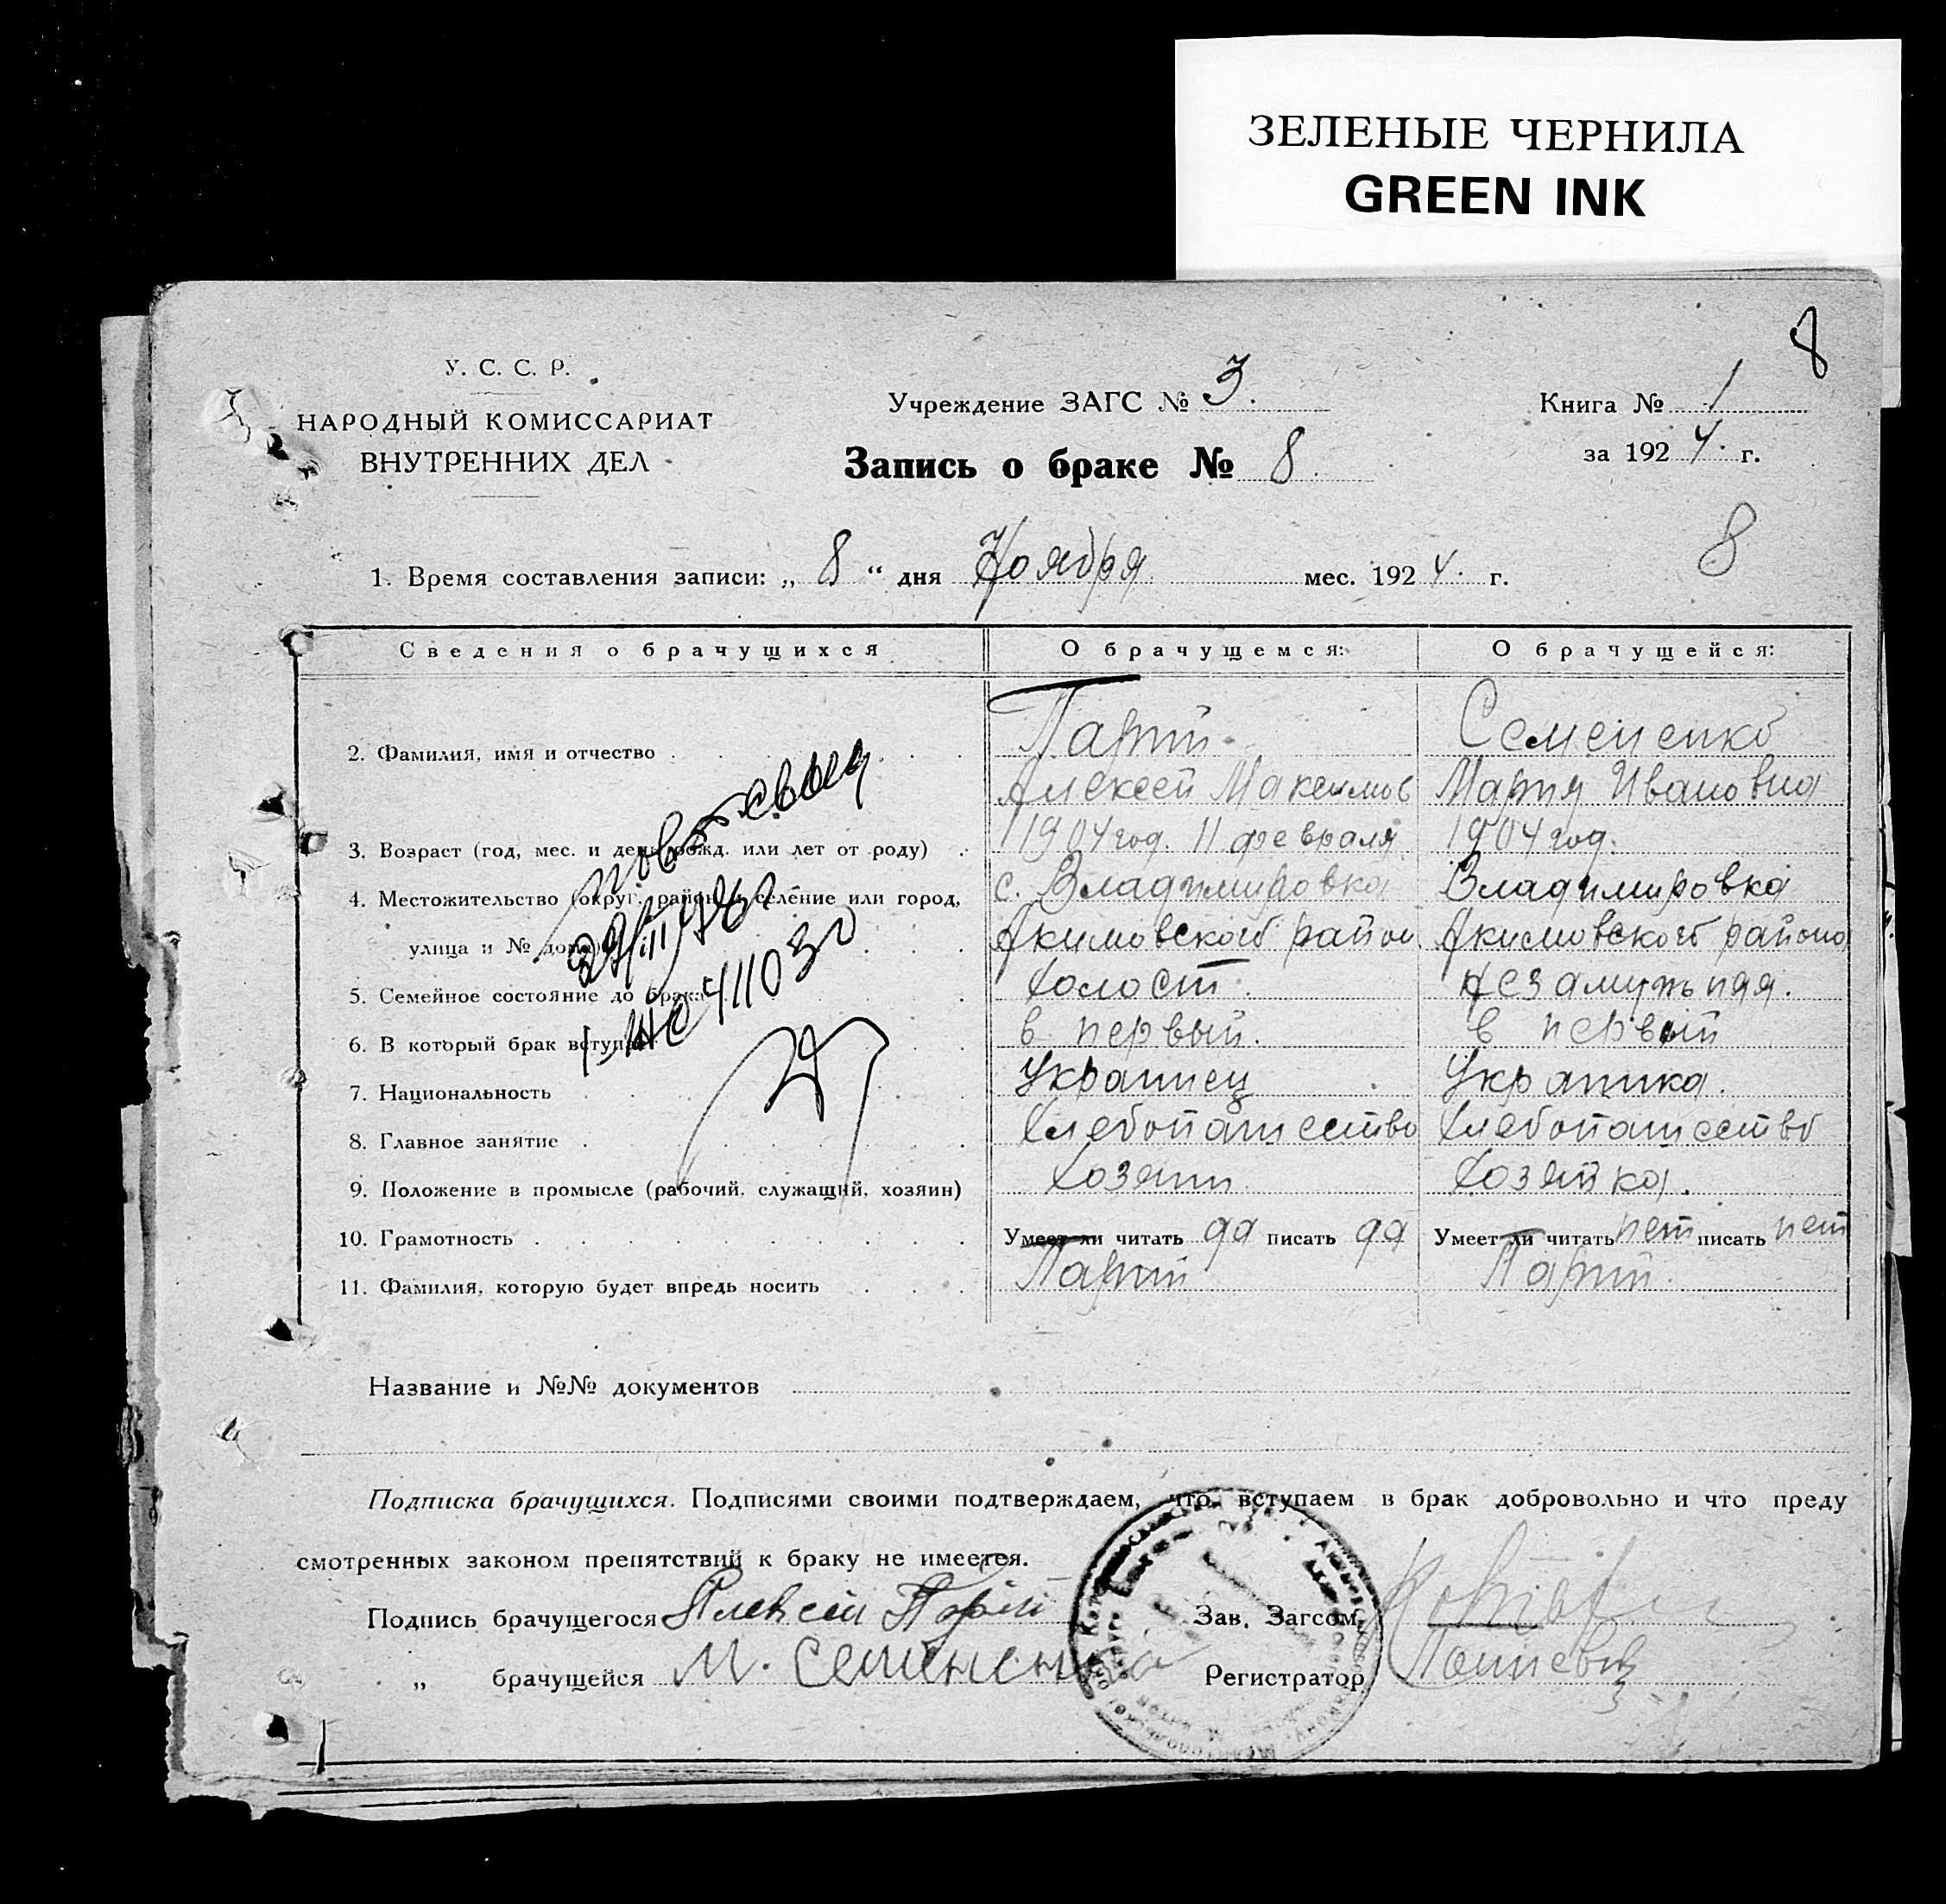 ЗЕЛЕНЫЕ ЧЕРНИЛА
GREEN INK
8
У. С. С. Р.
НАРОДНЫЙ КОМИССАРИАТ
ВНУТРЕННИХ ДЕЛ
Учреждение ЗАГС № 3.
Книга № 1
Запись о браке № 8
за 1924. г.
8
1. Время составления записи: „ 8 “ дня Ноября мес. 1924. г.
Сведения о брачущихся О брачущемся: О брачущейся:
2. Фамилия, имя и отчество Парий Семененко
Алексей Максимов Мария Ивановна
3. Возраст (год, мес. и день рожд. или лет от роду) 1904 год. 11 февраля 1904 год.
4. Местожительство (округ, район и селение или город, с. Владимировка Владимировка
улица и № дома) Акимовского район Акимовского района
5. Семейное состояние до брака Холост. Незамужняя.
6. В который брак вступает в первый. в первый
7. Национальность Украинец Украинка.
8. Главное занятие Хлебопашество Хлебопашество
9. Положение в промысле (рабочий, служащий, хозяин) Хозяин Хозяйка.
10. Грамотность Умеет ли читать да писать да Умеет ли читать нет писать нет
11. Фамилия, которую будет впредь носить Парий Парий.
Название и №№ документов
Подписка брачущихся. Подписями своими подтверждаем, что вступаем в брак добровольно и что преду
смотренных законом препятствий к браку не имеется.
Подпись брачущегося Алексей Парий Зав. Загсом
„ брачущейся М. Семененко Регистратор